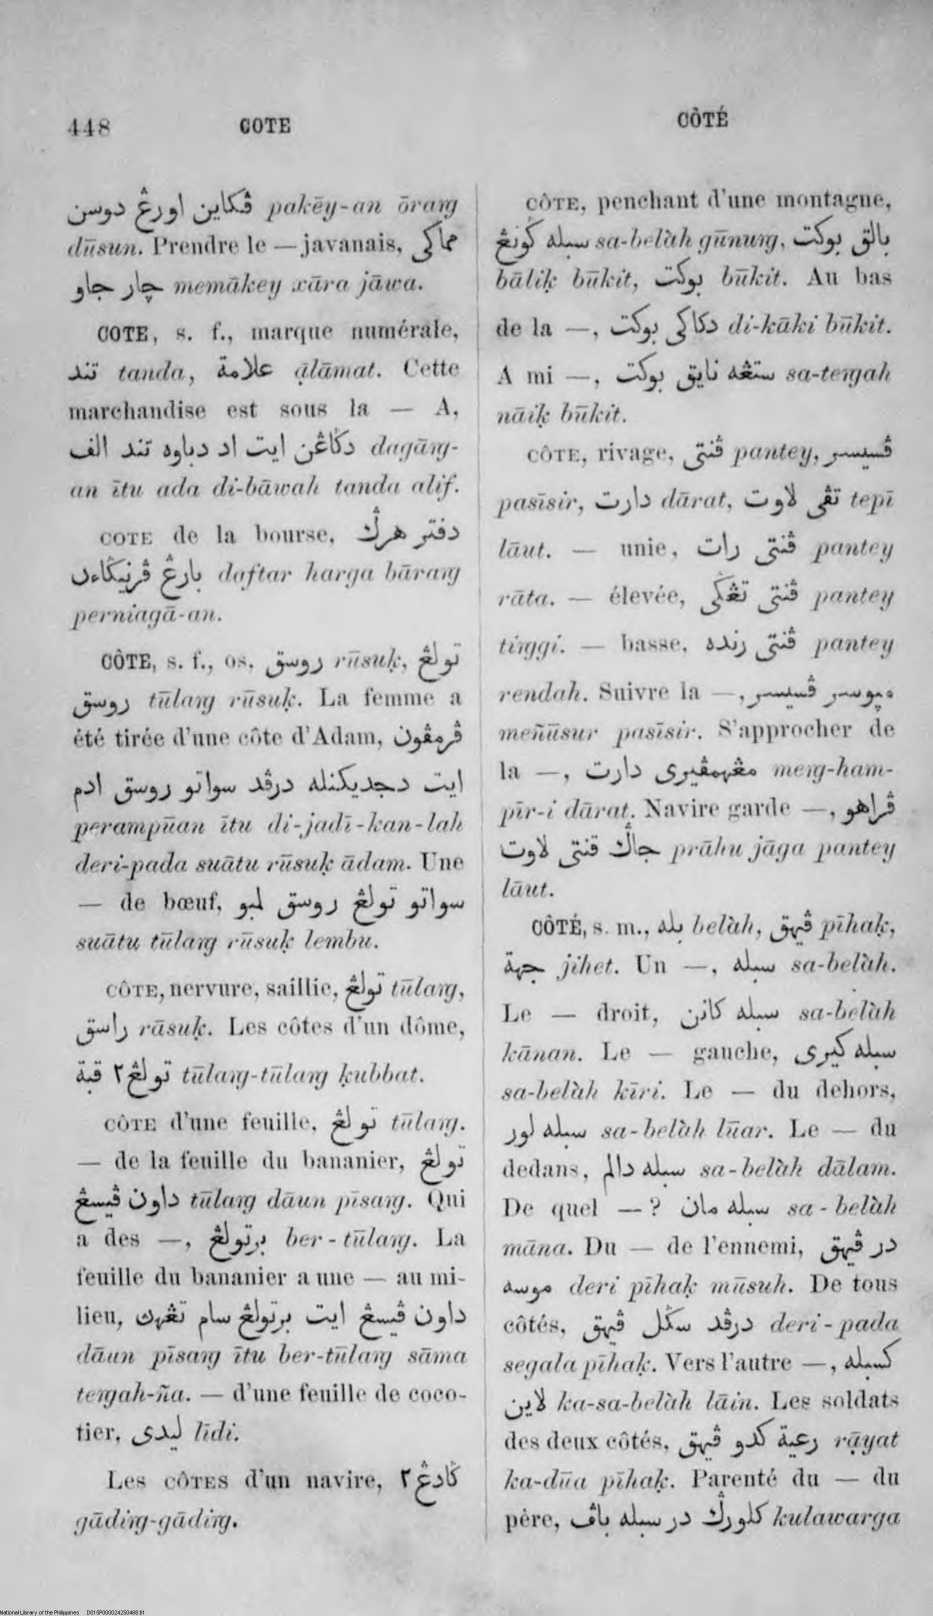 448 COTE
ڤکاين اورڠ دوسن pakēy-an ōraŋ
dūsun. Prendre le — javanais, مماکی
چار جاو memākey xāra jāwa.
COTE, s. f., marque numérale,
تند tanda, علامة ạlāmat. Cette
marchandise est sous la — A,
دڬاڠن ايت اد دباوه تند الف dagāŋ-
an ītu ada di-bāwah tanda alif.
COTE de la bourse, دفتر هرڬ
بارڠ ڤرنيڬاءن daftar harga bāraŋ
perniagā-an.
CÔTE, s. f., os, روسق rūsuḳ, تولڠ
روسق tūlaŋ rūsuḳ. La femme a
été tirée d'une côte d'Adam, ڤرمڤون
ايت دجديکنله درڤد سواتو روسق ادم
perampūan ītu di-jadī-kan-lah
deri-pada suātu rūsuḳ ādam. Une
— de bœuf, سواتو تولڠ روسق لمبو
suātu tūlaŋ rūsuḳ lembu.
CÔTE, nervure, saillie, تولڠ tūlaŋ,
راسق rāsuḳ. Les côtes d'un dôme,
تولڠ٢ قبة tūlaŋ-tūlaŋ ḳubbat.
CÔTE d'une feuille, تولڠ tūlaŋ.
— de la feuille du bananier, تولڠ
داون ڤيسڠ tūlaŋ dāun pīsaŋ. Qui
a des —, برتولڠ ber-tūlaŋ. La
feuille du bananier a une — au mi-
lieu, داون ڤيسڠ ايت برتولڠ سام تڠهڽ
dāun pīsaŋ ītu ber-tūlaŋ sāma
teŋah-ña. — d'une feuille de coco-
tier, ليدی līdi.
Les CÔTES d'un navire, ڬادڠ٢
gādiŋ-gādiŋ.
CÔTÉ
CÔTE, penchant d'une montagne,
سبله ڬونڠ sa-belàh gūnuŋ, بالق بوکت
bāliḳ būkit, بوکت būkit. Au bas
de la —, دکاکی بوکت di-kāki būkit.
A mi —, ستڠه نايق بوکت sa-teŋah
nāiḳ būkit.
CÔTE, rivage, ڤنتی pantey, ڤسيسر
pasīsir, دارت dārat, تڤی لاوت tepī
lāut. — unie, ڤنتی رات pantey
rāta. — élevée, ڤنتی تڠڬی pantey
tiŋgi. — basse, ڤنتی رنده pantey
rendah. Suivre la —, مڽوسر ڤسيسر
meñūsur pasīsir. S'approcher de
la —, مڠهمڤيری دارت meŋ-ham-
pīr-i dārat. Navire garde —, ڤراهو
جاڬ ڤنتی لاوت prāhu jāga pantey
lāut.
CÔTÉ, s. m., بله belàh, ڤيهق pīhaḳ,
جهة jīhet. Un —, سبله sa-belàh.
Le — droit, سبله کانن sa-belàh
kānan. Le — gauche, سبله کيری
sa-belàh kīri. Le — du dehors,
سبله لور sa-belàh lūar. Le — du
dedans, سبله دالم sa-belàh dālam.
De quel — ? سبله مان sa-belàh
māna. Du — de l'ennemi, در ڤيهق
موسه deri pīhaḳ mūsuh. De tous
côtés, درڤد سڬل ڤيهق deri-pada
segala pīhaḳ. Vers l'autre —, کسبله
لاين ka-sa-belàh lāin. Les soldats
des deux côtés, رعية کدو ڤيهق rạ̄yat
ka-dūa pīhaḳ. Parenté du — du
père, کلورڬ در سبله باڤ kulawarga
National Library of the Philippines